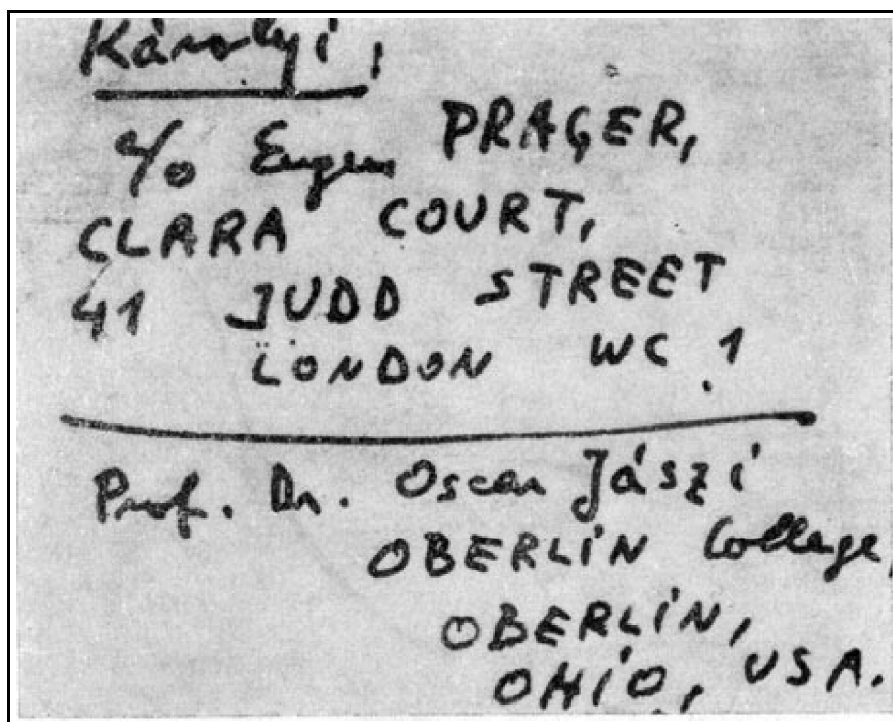 Károlyi,
c/o Eugen PRAGER,
CLARA COURT,
41 JUDD STREET
LONDON WC 1
Prof. Dr. Oscar Jászi
OBERLIN College,
OBERLIN,
OHIO, USA.